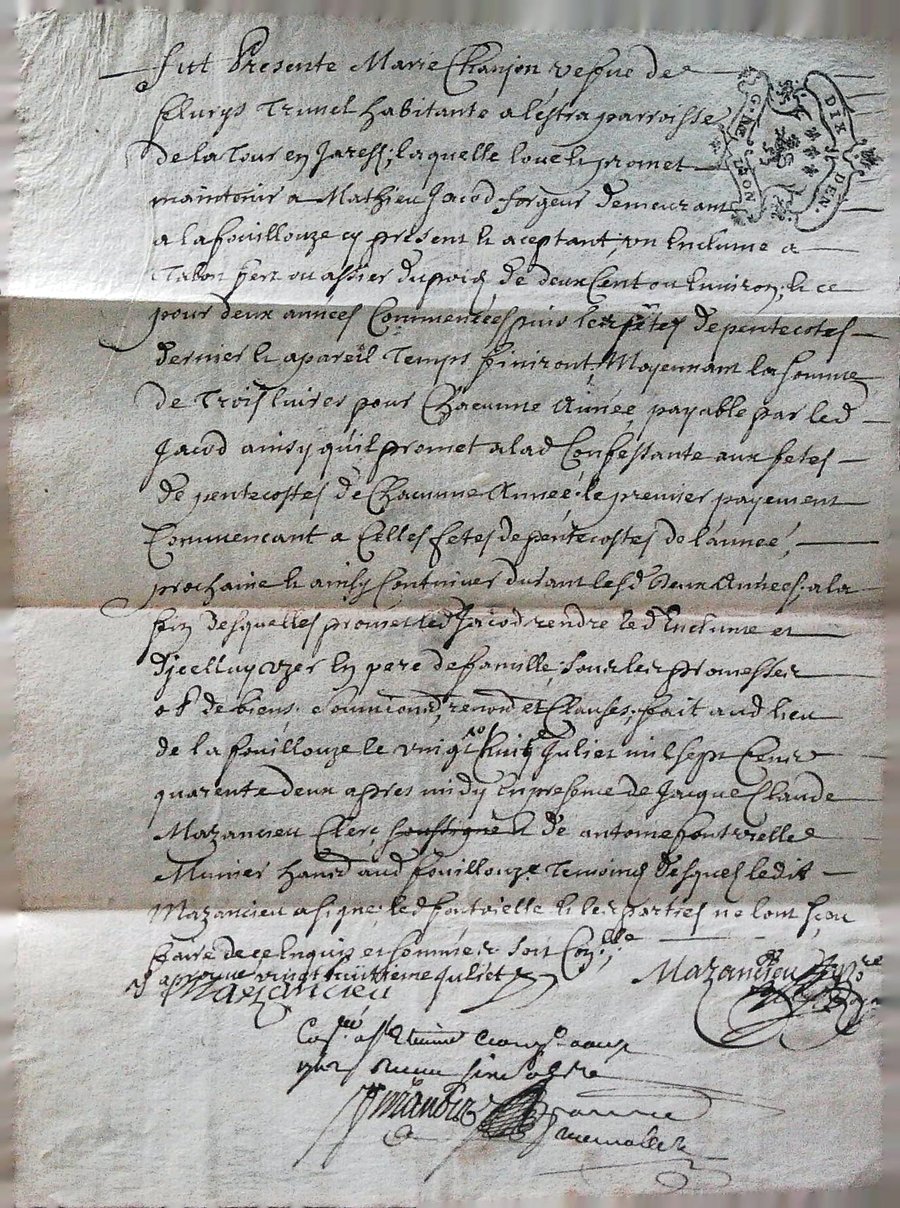 Fut Presente Marie Chanjon vefue de
fleurys Trunel habitante a lestra parroisse
de la Tour en Jarest, laquelle loue et promet
maintenir a Mathieu Jacod forgeur demeurant
a la fouillouze cy present et aceptant, un Enclume a
Talon fert ou assier du poid de deux Cent ou Environ, et ce
pour deux années Commencées puis les fêtes de pentecostes
dernier et a pareil Temps finiront, Moyennant la somme
de Trois livres pour Chacunne Année, payable par led
Jacod ainsy quil promet a lad Confessante aux fetes
de pentecostes de Chacunne Année, le premier payement
Commencant a Celles fetes de pentecostes de l'année,
prochaine et ainsy Continuer durant lesd deux Années, a la
fin desquelles promet led Jacod rendre led Enclume et
dicelluy uzer en pere de famille, sous les promesses
ob de biens, soumiond, renond et Clauses, fait aud lieu
de la fouillouze le vingt huit Juliet mil sept Cent
quarente deux apres midy En presence de Jacque Claude
Mazancieu Clerc soussigné et de antoine fontvielle
Munier habitd aud fouillouze Temoins desquels ledit
Mazancieu a signe, led fontvielle et les parties ne lont sçeu
faire de ce Enquis et sommés soit Con.lle
J aprouve vingt huitieme Juliet
Mazancieu
Mazancieu
DIX DEN.
G. NE. LION